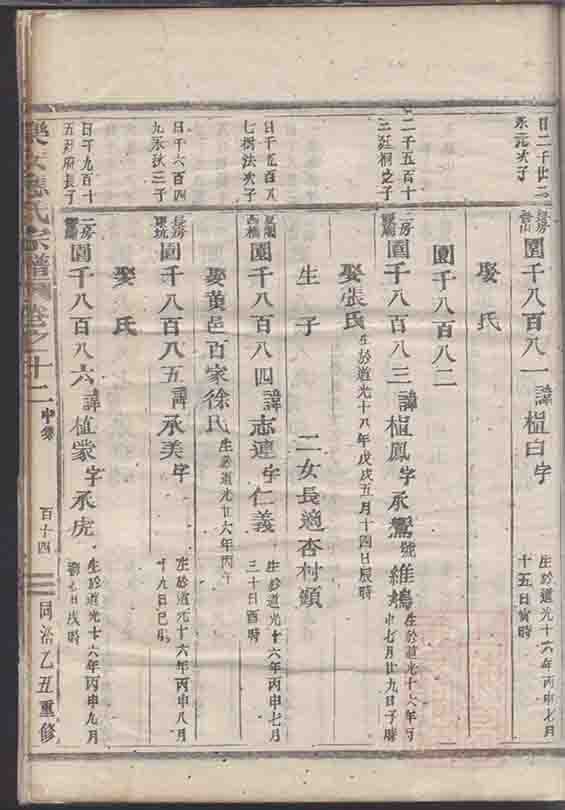 日二千廿二
永元次子
長房
圍千八百八一諱楦白字
生於道光十六年丙申七月
十五日寅時
娶 氏
圍千八百八二
二千五百十
桐之子
二房
圍千八百八三諱楦鳳字承鸞號維鳩
生於道光十六年丙
申七月廿九日子時
娶張氏
生於道光十八年戊戌五月十四日辰時
生子 二女長適杏村
七樹法次子
圍千八百八四諱志連字仁義
生於道光十六年丙申七月
三十日酉時
娶黄邑百家徐氏
生於道光廿六年丙午
日千六百四
九永秋三子
長房
圍千八百八五諱承美字
生於道光十六年丙申八月
十九日巳時
娶 氏
日千九百十
五 府長子
二房
圍千八百八六諱植棠字承虎
生於道光十六年丙申九月
初七日戌時
氏宗譜 卷之十二
中集
百十四
同治乙丑重修